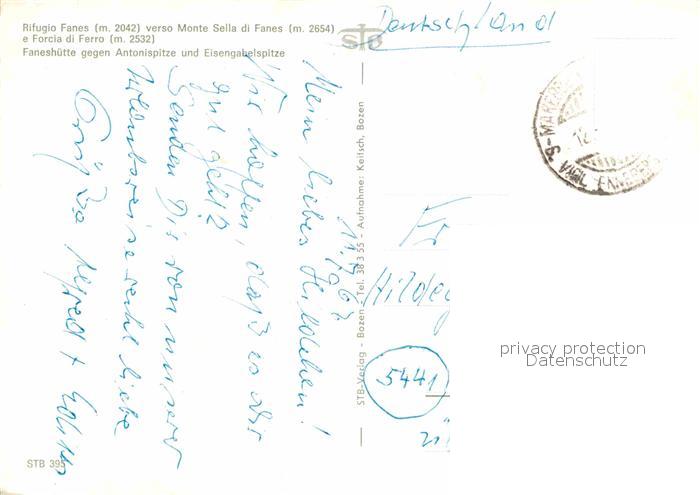 Rifugio Fanes (m. 2042) verso Monte Sella di Fanes (m. 2654)
e Forcia di Ferro (m. 2532)
Faneshütte gegen Antonispitze und Eisengabelspitze
STB
Deutschland
Mein liebes Hildchen!
Wir hoffen, daß es dir
gut geht?
Senden Dir von unserer
recht liebe
Grüße Alfred +
STB-Verlag - Bozen - Tel. 38 3 55 - Aufnahme: Keitsch, Bozen
Fr
Hildeg
5441
STB 395
privacy protection
Datenschutz